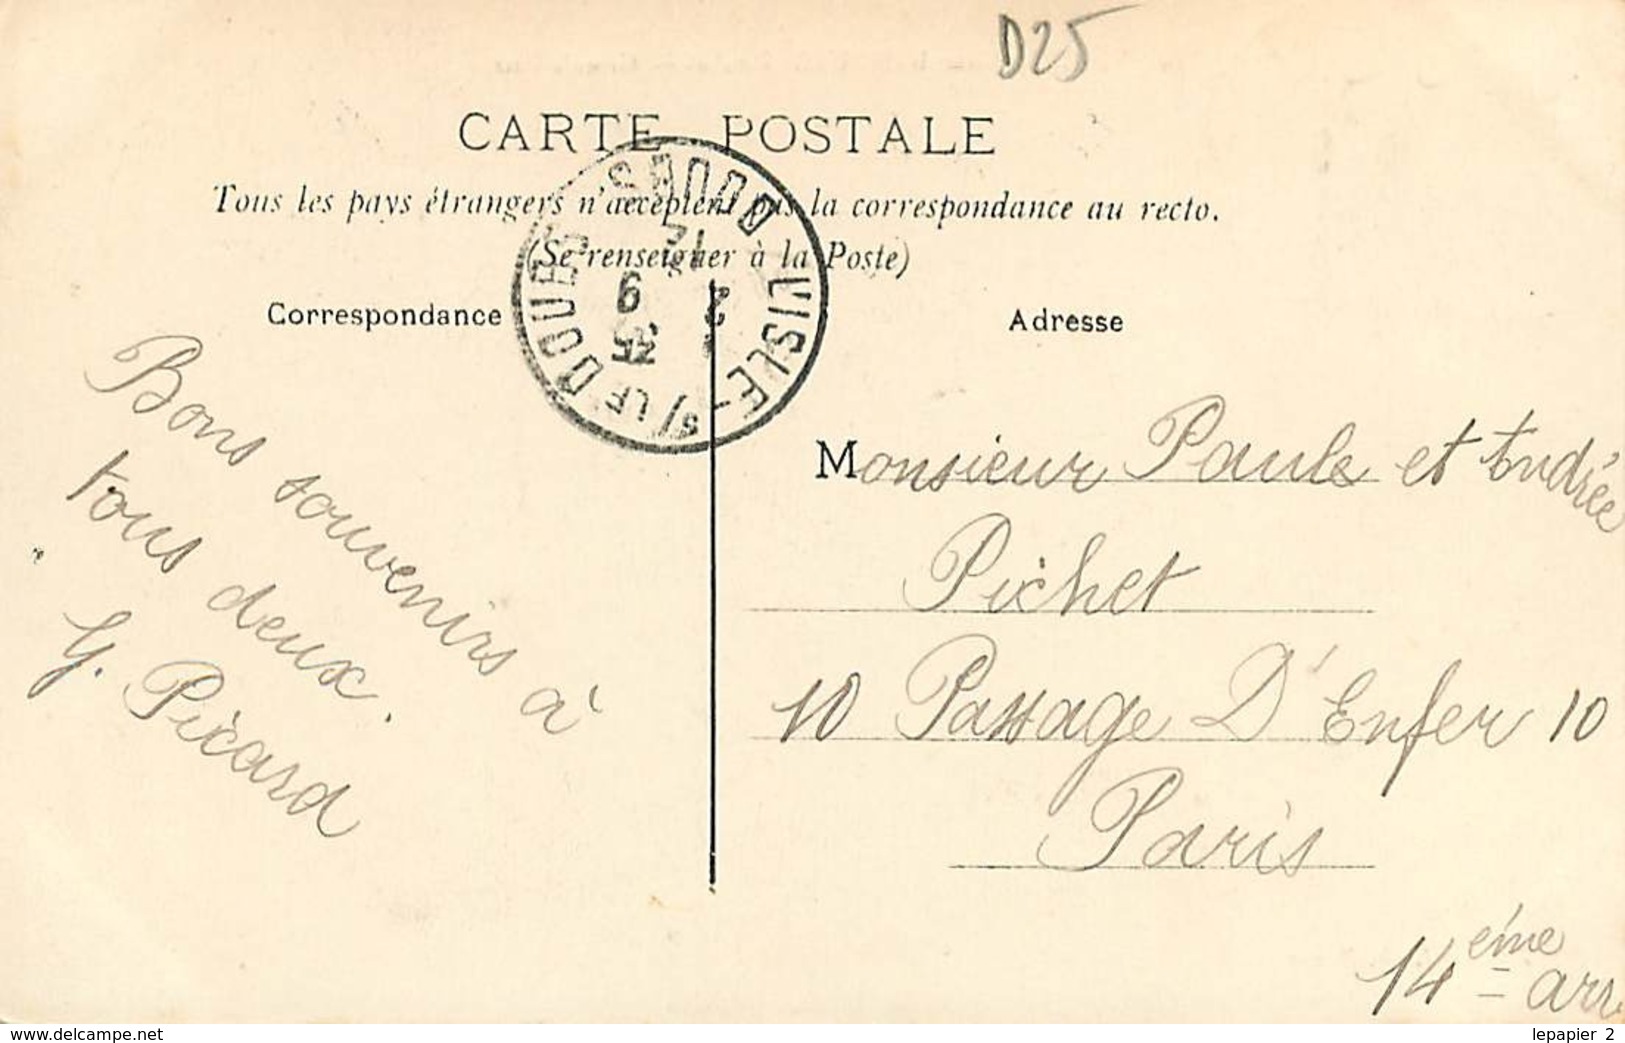 D25
CARTE POSTALE
Tous les pays étrangers n'acceptent pas la correspondance au recto.
(Se renseigner à la Poste)
Correspondance
Adresse
L'ISLE-S/LE DOUBS DOUBS
Bons souvenirs à
tous deux.
G. Picard
Monsieur Paule et Andrée
Pichet
10 Passage D'Enfer 10
Paris
14ème arr
www.delcampe.net
lepapier_2